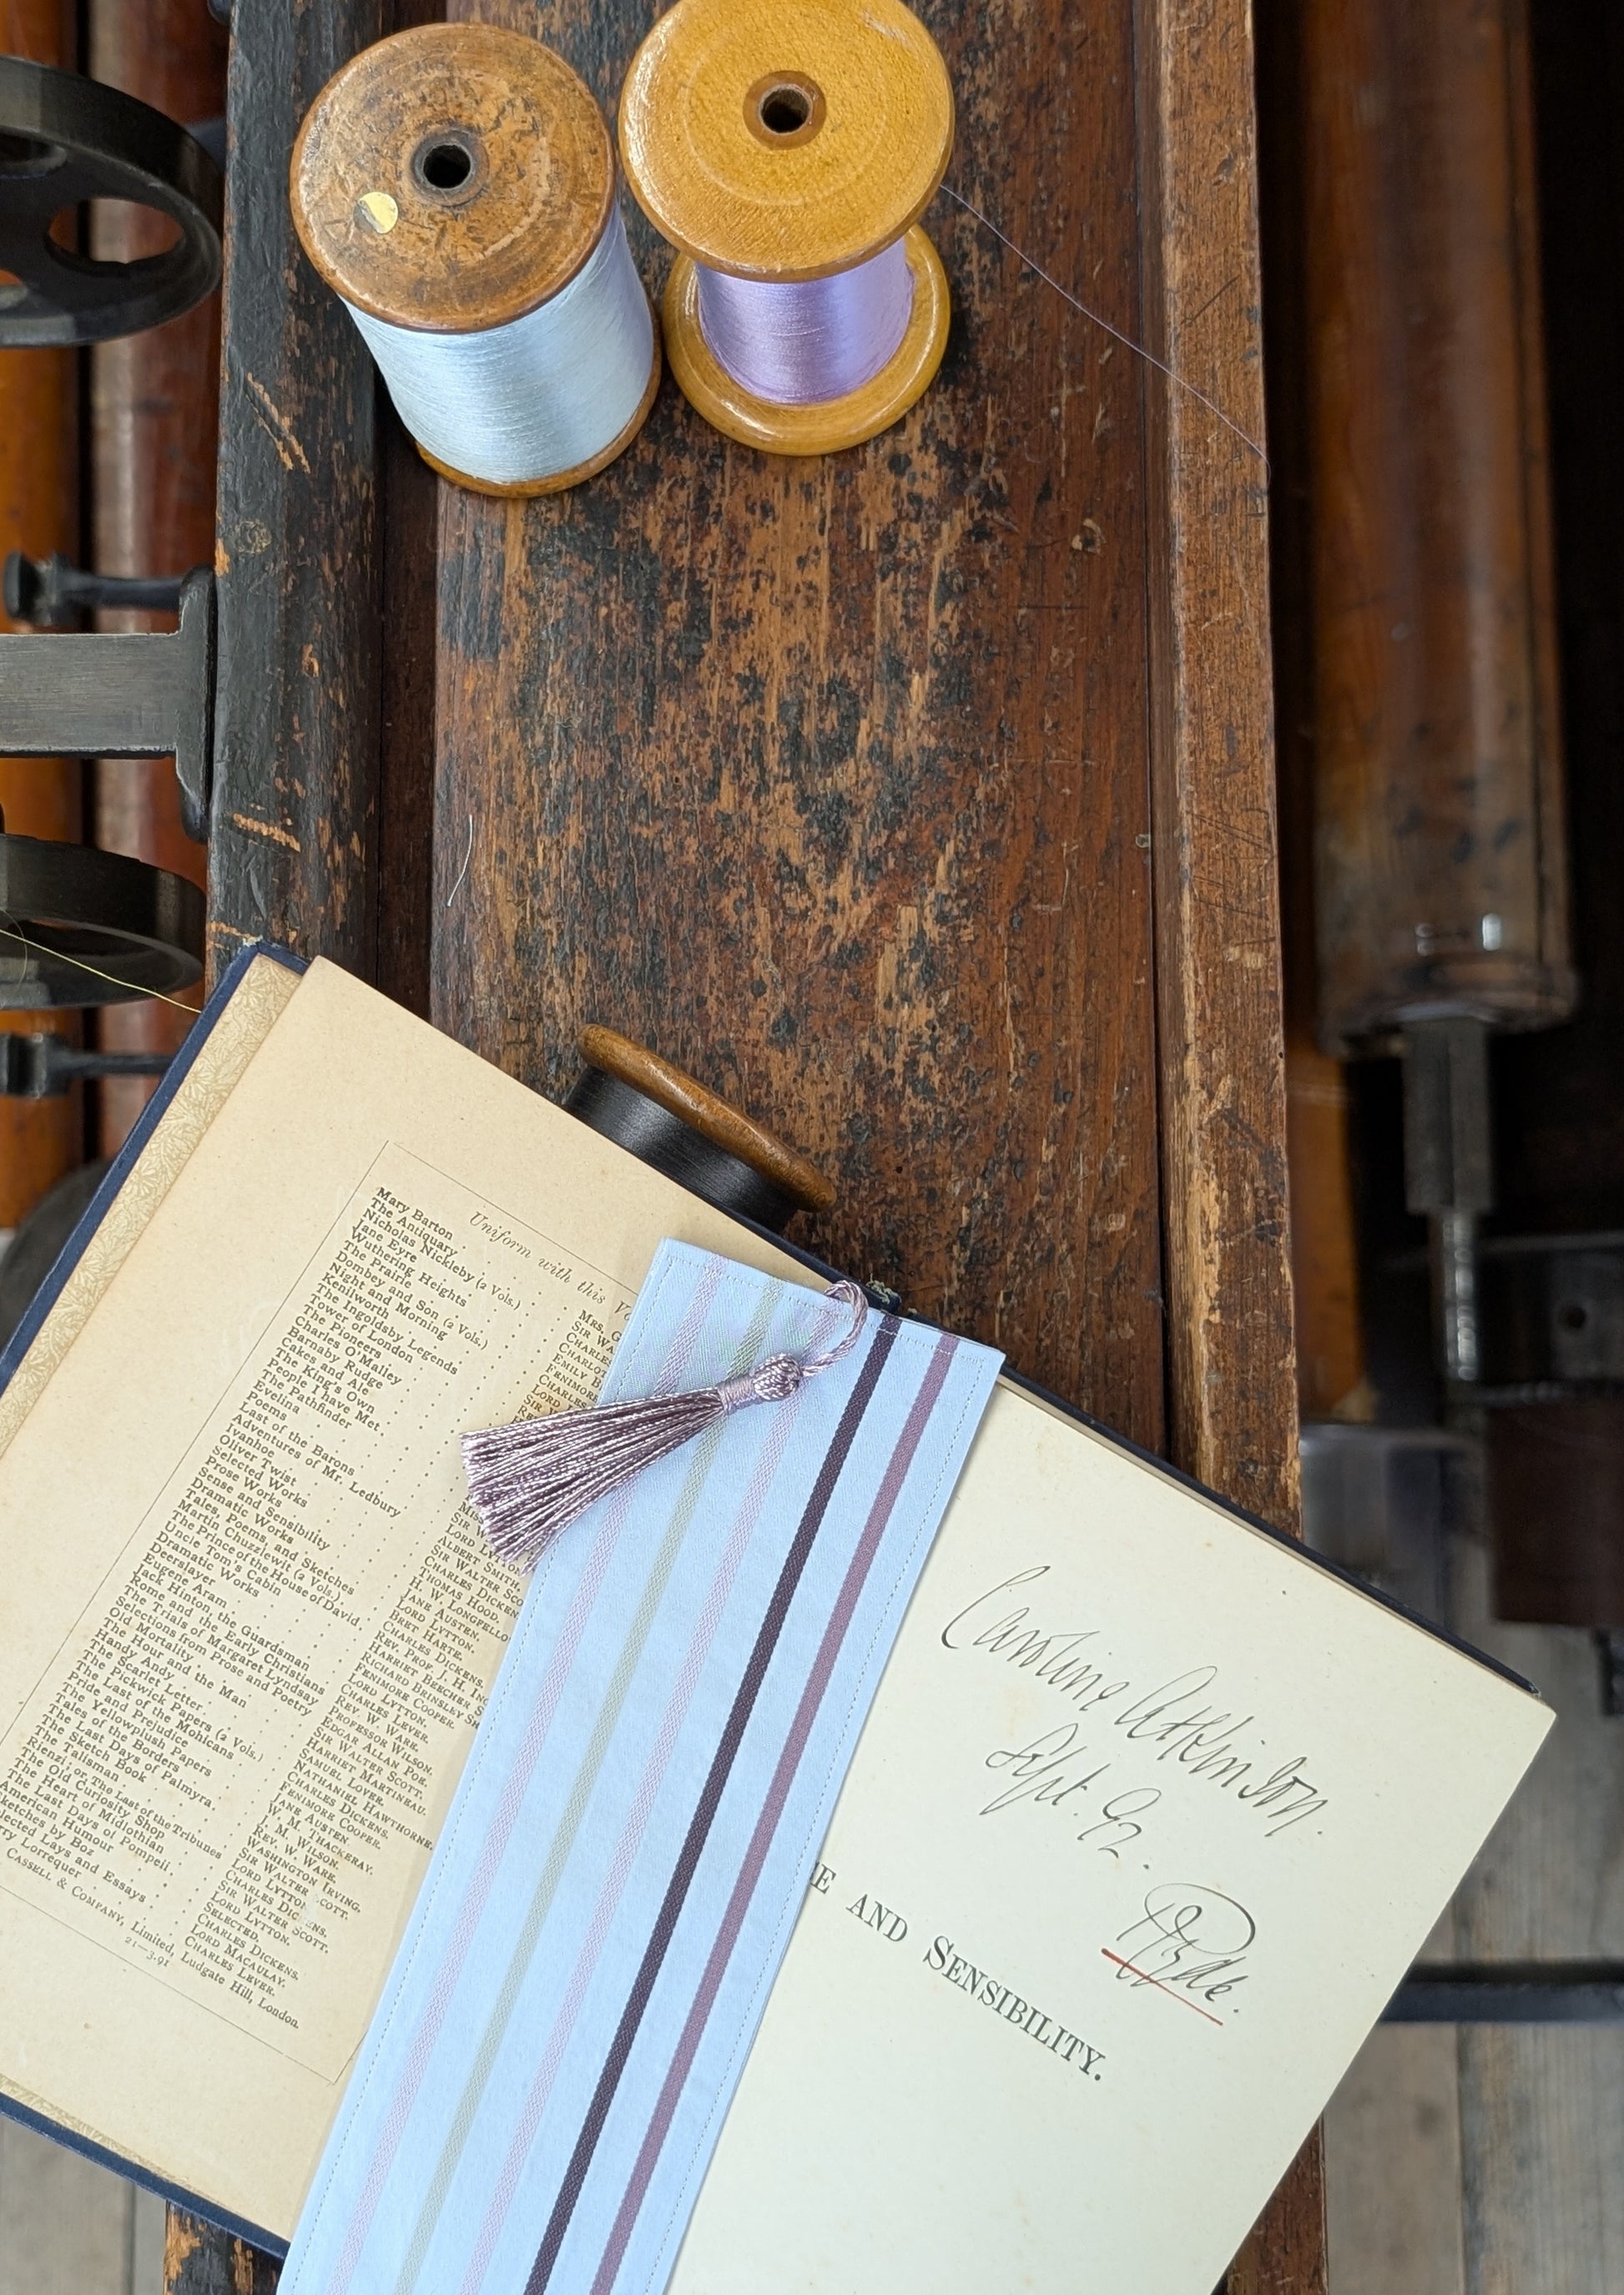 Uniform with this
Mary Barton
The Antiquary
Nicholas Nickleby (2 Vols.)
Jane Eyre
Wuthering Heights
The Prairie
Dombey and Son (2 Vols.)
Night and Morning
Kenilworth
The Ingoldsby Legends
Tower of London
The Pioneers
Charles O'Malley
Barnaby Rudge
Cakes and Ale
The King's Own
People I have Met
The Pathfinder
Evelina
Poems
Last of the Barons
Adventures of Mr. Ledbury
Ivanhoe
Oliver Twist
Selected Works
Prose Works
Sense and Sensibility
Dramatic Works
Tales, Poems, and Sketches
Martin Chuzzlewit (2 Vols.)
The Prince of the House of David
Uncle Tom's Cabin
Dramatic Works
Deerslayer
Eugene Aram
Jack Hinton, the Guardsman
Rome and the Early Christians
The Trials of Margaret Lyndsay
Selections from Prose and Poetry
Old Mortality
The Hour and the Man
Handy Andy
The Scarlet Letter
The Pickwick Papers (2 Vols.)
The Last of the Mohicans
Pride and Prejudice
The Yellowplush Papers
Tales of the Borders
The Last Days of Palmyra
The Sketch Book
The Talisman
Rienzi; or The Last of the Tribunes
The Old Curiosity Shop
The Heart of Midlothian
The Last Days of Pompeii
American Humour
Sketches by Boz
Lays and Essays
Lorrequer
MRS. G
SIR WA
CHARLES
CHARLOT
EMILY B
FENIMORE
CHARLES
LORD
ALBERT SMITH.
SIR WALTER SCO
CHARLES DICKEN
THOMAS HOOD.
H. W. LONGFELLO
JANE AUSTEN.
LORD LYTTON.
BRET HARTE.
CHARLES DICKENS.
REV. PROF. J. H. ING
HARRIET BEECHER S
RICHARD BRINSLEY SH
FENIMORE COOPER.
LORD LYTTON.
CHARLES LEVER.
REV. W. WARE.
PROFESSOR WILSON.
EDGAR ALLAN POE.
SIR WALTER SCOTT.
HARRIET MARTINEAU.
SAMUEL LOVER.
NATHANIEL HAWTHORNE.
CHARLES DICKENS.
FENIMORE COOPER.
JANE AUSTEN
W. M. THACKERAY.
J. M. WILSON.
REV. W. WARE.
WASHINGTON IRVING.
SIR WALTER SCOTT.
LORD LYTTON.
CHARLES DICKENS.
SIR WALTER SCOTT.
LORD LYTTON.
SELECTED.
CHARLES DICKENS.
LORD MACAULAY.
CHARLES LEVER.
CASSELL & COMPANY, Limited, Ludgate Hill, London.
21—3.91
Caroline Atkinson.
Sept. 92.
Ryde.
E AND SENSIBILITY.